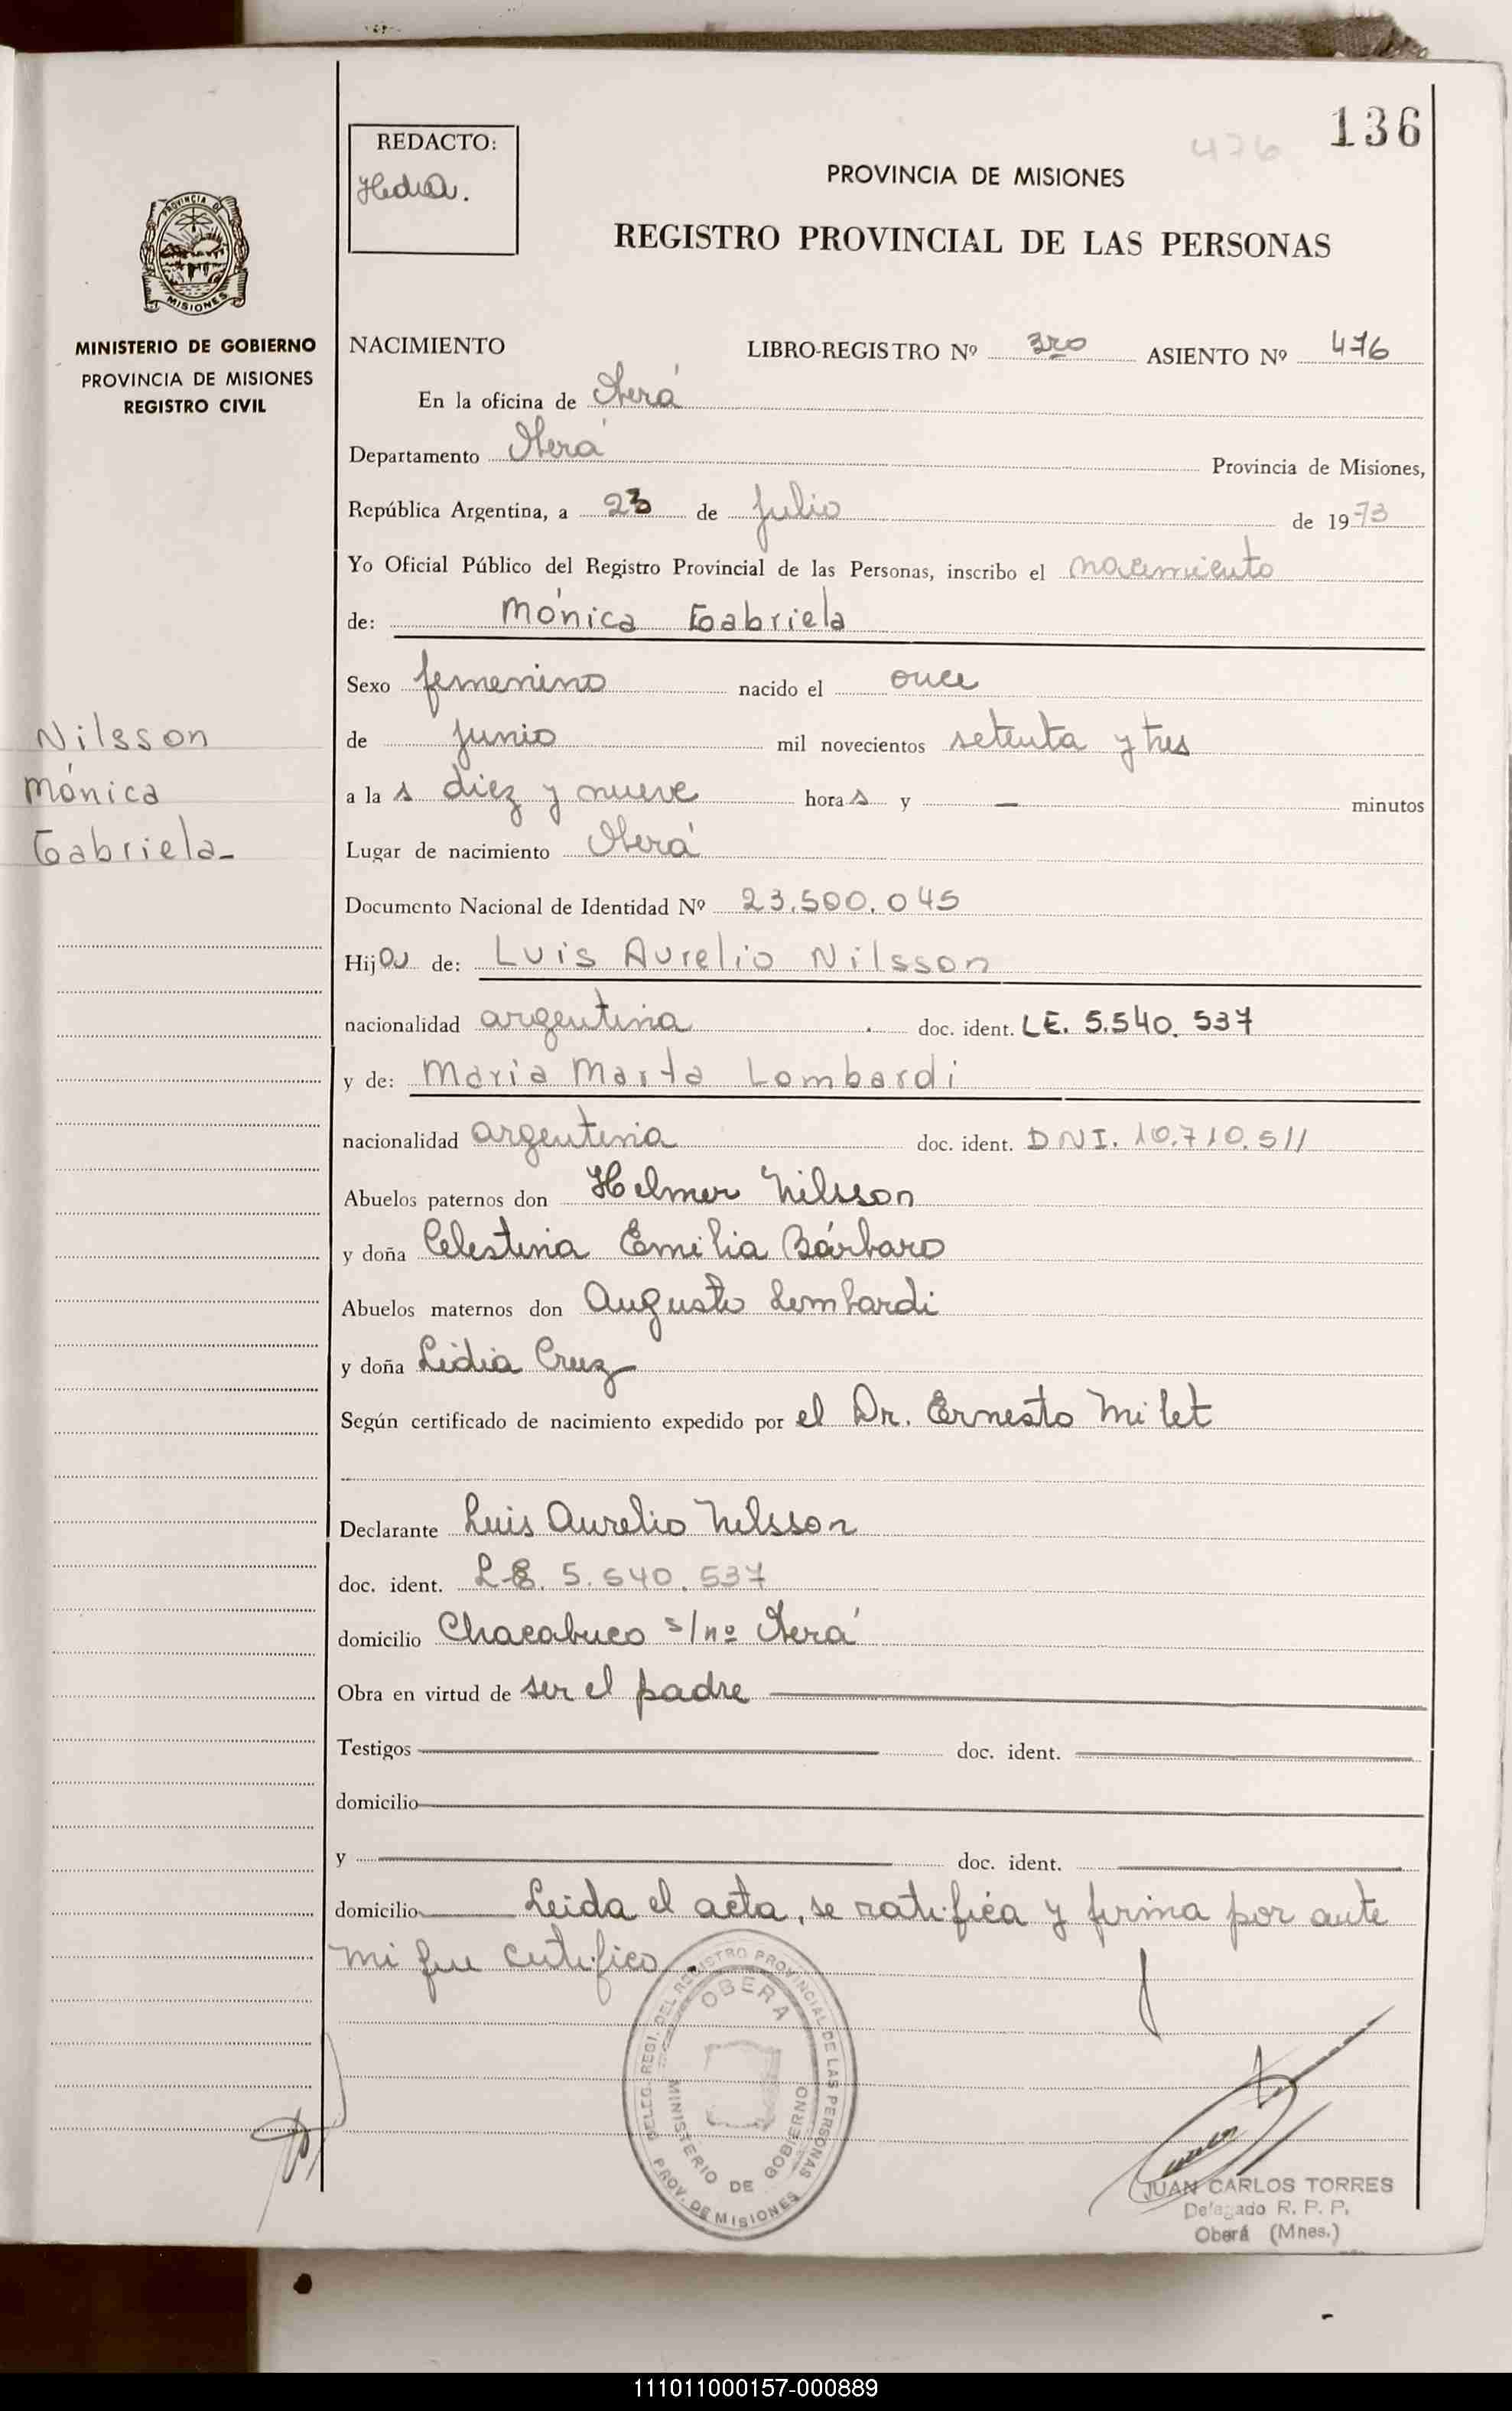 136
476
REDACTO:
PROVINCIA DE MISIONES
REGISTRO PROVINCIAL DE LAS PERSONAS
PROVINCIA DE
MISIONES
MINISTERIO DE GOBIERNO
PROVINCIA DE MISIONES
REGISTRO CIVIL
NACIMIENTO LIBRO-REGISTRO Nº 3ro ASIENTO Nº 476
En la oficina de Oberá
Departamento Oberá Provincia de Misiones,
República Argentina, a 23 de julio de 1973
Yo Oficial Público del Registro Provincial de las Personas, inscribo el nacimiento
de: Mónica Gabriela
Sexo femenino nacido el once
de junio mil novecientos setenta y tres
a las diez y nueve horas y — minutos
Lugar de nacimiento Oberá
Documento Nacional de Identidad Nº 23.500.045
Hija de: Luis Aurelio Nilsson
nacionalidad argentina doc. ident. LE. 5.540.537
y de: María Marta Lombardi
nacionalidad argentina doc. ident. DNI. 10.710.511
Abuelos paternos don Helmer Nilsson
y doña Celestina Emilia Bárbaro
Abuelos maternos don Augusto Lombardi
y doña Lidia Cruz
Según certificado de nacimiento expedido por el Dr. Ernesto Milet
Declarante Luis Aurelio Nilsson
doc. ident. L.E. 5.540.537
domicilio Chacabuco s/nº Oberá
Obra en virtud de ser el padre
Testigos doc. ident.
domicilio
y doc. ident.
domicilio Leida el acta, se ratifica y firma por ante
mi que certifico.
Nilsson
Mónica
Gabriela-
DELEG. REGI. DEL REGISTRO PROVINCIAL DE LAS PERSONAS
OBERA
MINISTERIO DE GOBIERNO
PROV. DE MISIONES
JUAN CARLOS TORRES
Delegado R. P. P.
Oberá (Mnes.)
111011000157-000889